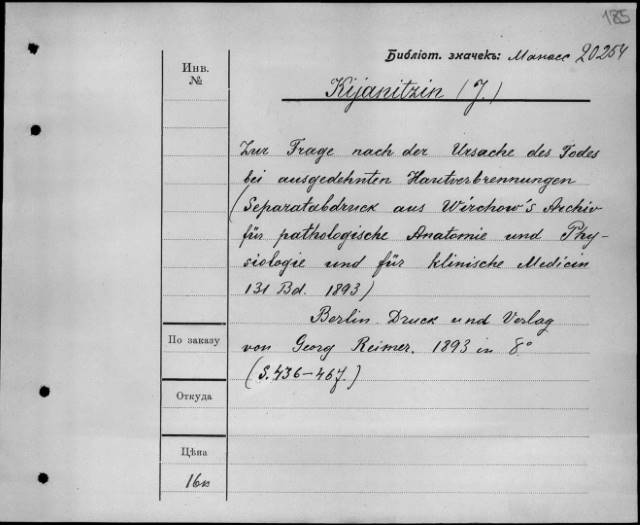 185
Библіот. значекъ: Манасс 20254
Инв.
№
Kijanitzin (J.)
Zur Frage nach der Ursache des Todes
bei ausgedehnten Hautverbrennungen
(Separatabdruck aus Wirchow's Archiv
für pathologische Anatomie und Phy-
siologie und für klinische Medicin
131 Bd. 1893)
Berlin. Druck und Verlag
von Georg Reimer. 1893 in 8°
(S. 436-467.)
По заказу
Откуда
Цѣна
16к